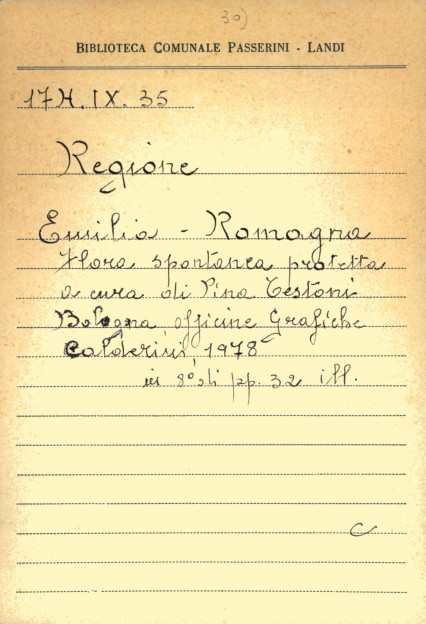 30)
BIBLIOTECA COMUNALE PASSERINI - LANDI
17H. IX. 35
Regione
Emilia - Romagna
Flora spontanea protetta
a cura di Pina Testoni
Bologna officine Grafiche
Calderini, 1978
in 8° di pp. 32 ill.
C